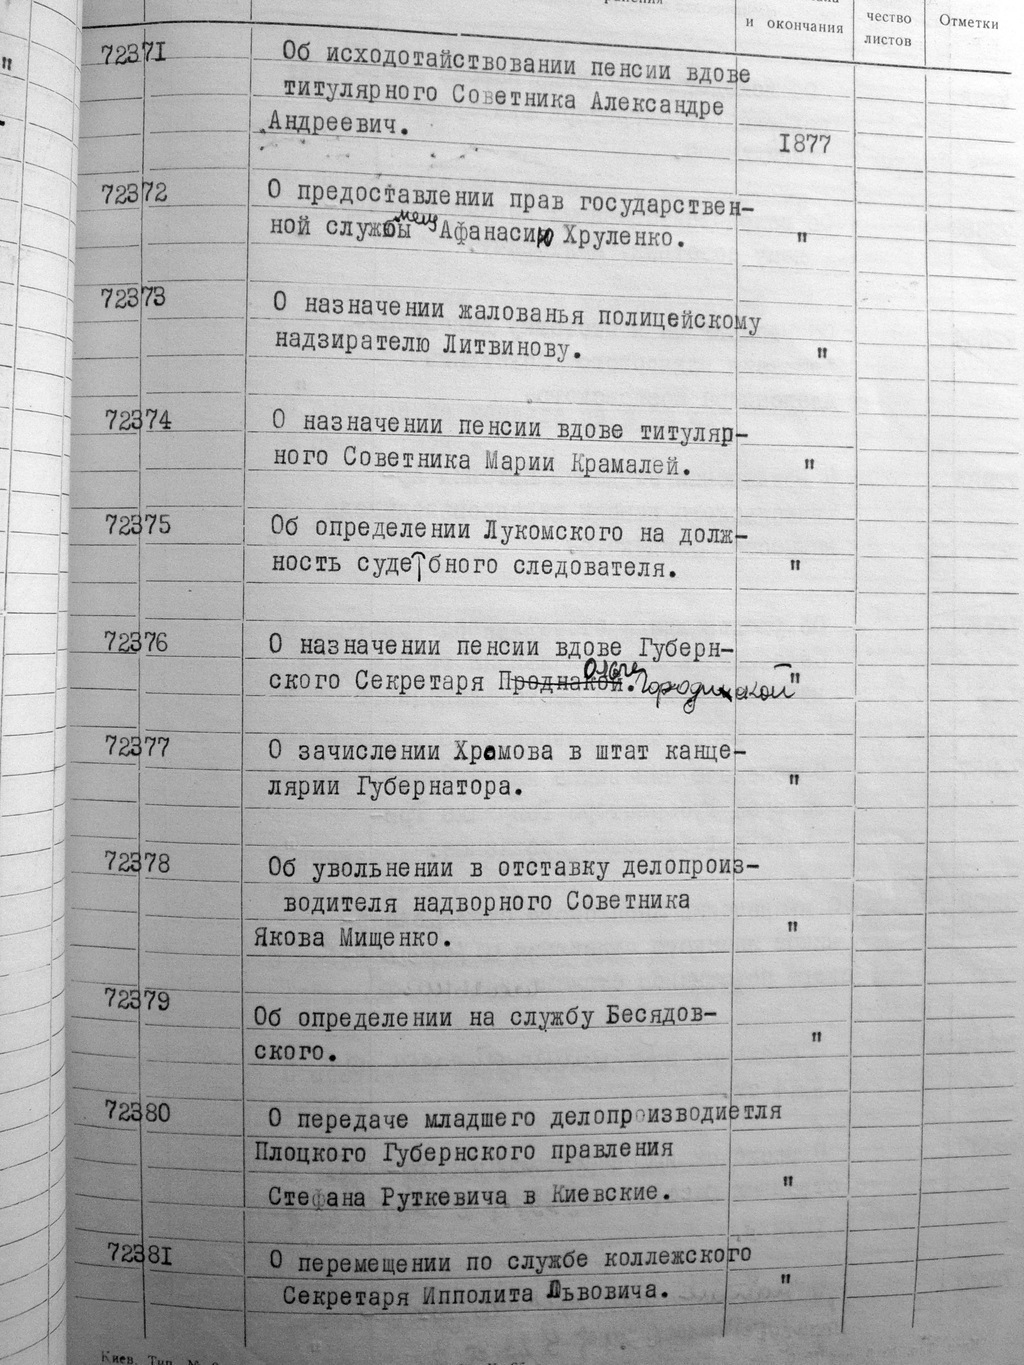 и окончания
чество
листов
Отметки
72371
Об исходотайствовании пенсии вдове
титулярного Советника Александре
Андреевич.
1877
72372
О предоставлении прав государствен-
мещ
ной службы Афанасию Хруленко. "
72373
О назначении жалованья полицейскому
надзирателю Литвинову. "
72374
О назначении пенсии вдове титуляр-
ного Советника Марии Крамалей. "
72375
Об определении Лукомского на долж-
ность судебного следователя. "
72376
О назначении пенсии вдове Губерн-
Ольге
ского Секретаря Проднакой. Городинской "
72377
О зачислении Хромова в штат канце-
лярии Губернатора. "
72378
Об увольнении в отставку делопроиз-
водителя надворного Советника
Якова Мищенко. "
72379
Об определении на службу Бесядов-
ского. "
72380
О передаче младшего делопроизводиетля
Плоцкого Губернского правления
Стефана Руткевича в Киевские. "
72381
О перемещении по службе коллежского
Секретаря Ипполита Львовича. "